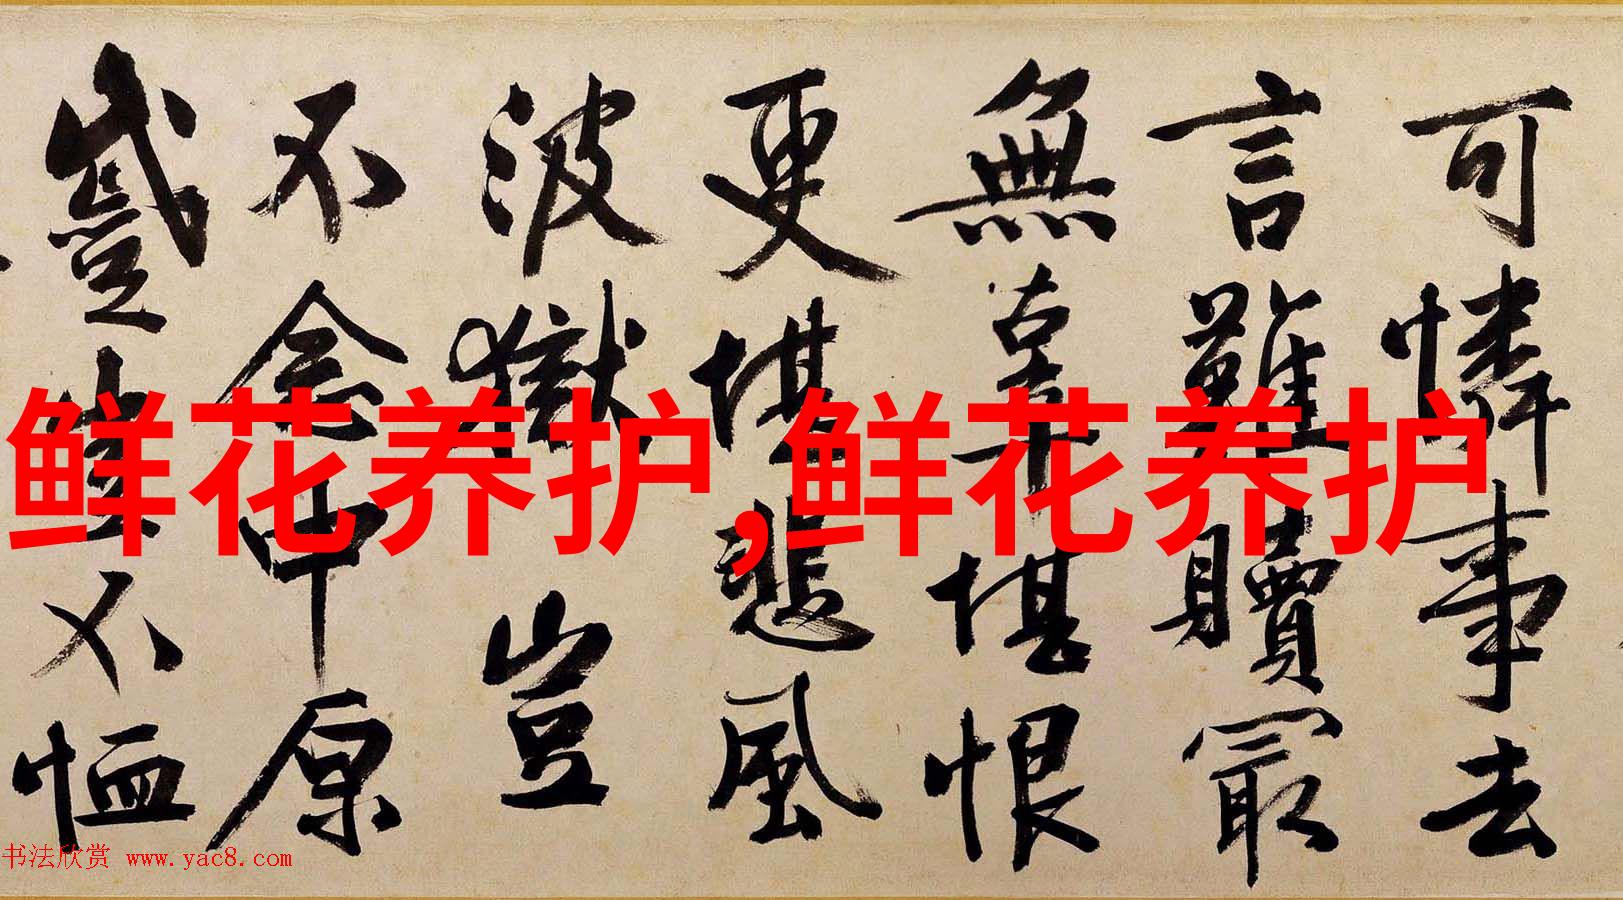 可憐事去
言難贖最
無辜堪恨
更堪悲風
波獄豈
不念中原
蹙豈不恤
鲜花养护,鲜花养护
书法欣赏 www.yac8.com